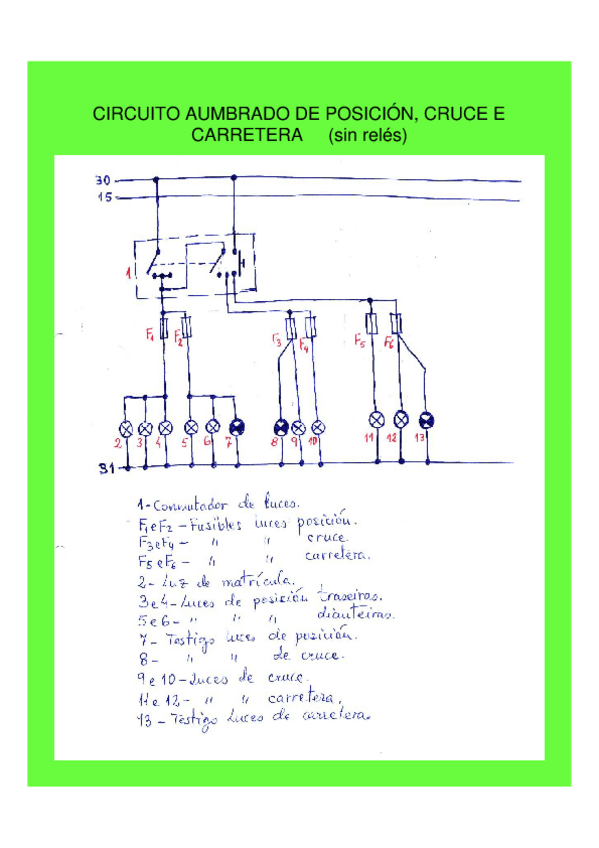 CIRCUITO AUMBRADO DE POSICIÓN, CRUCE E
CARRETERA (sin relés)
30
15
1
F1 F2 F3 F4 F5 F6
2 3 4 5 6 7 8 9 10 11 12 13
31
1-Conmutador de luces.
F1 e F2 - Fusibles luces posición.
F3 e F4 - " " cruce.
F5 e F6 - " " carretera.
2- Luz de matrícula.
3 e 4 - Luces de posición traseiras.
5 e 6 - " " " dianteiras.
7 - Testigo luces de posición.
8 - " " de cruce.
9 e 10 - Luces de cruce.
11 e 12 - " " carretera.
13 - Testigo luces de carretera.